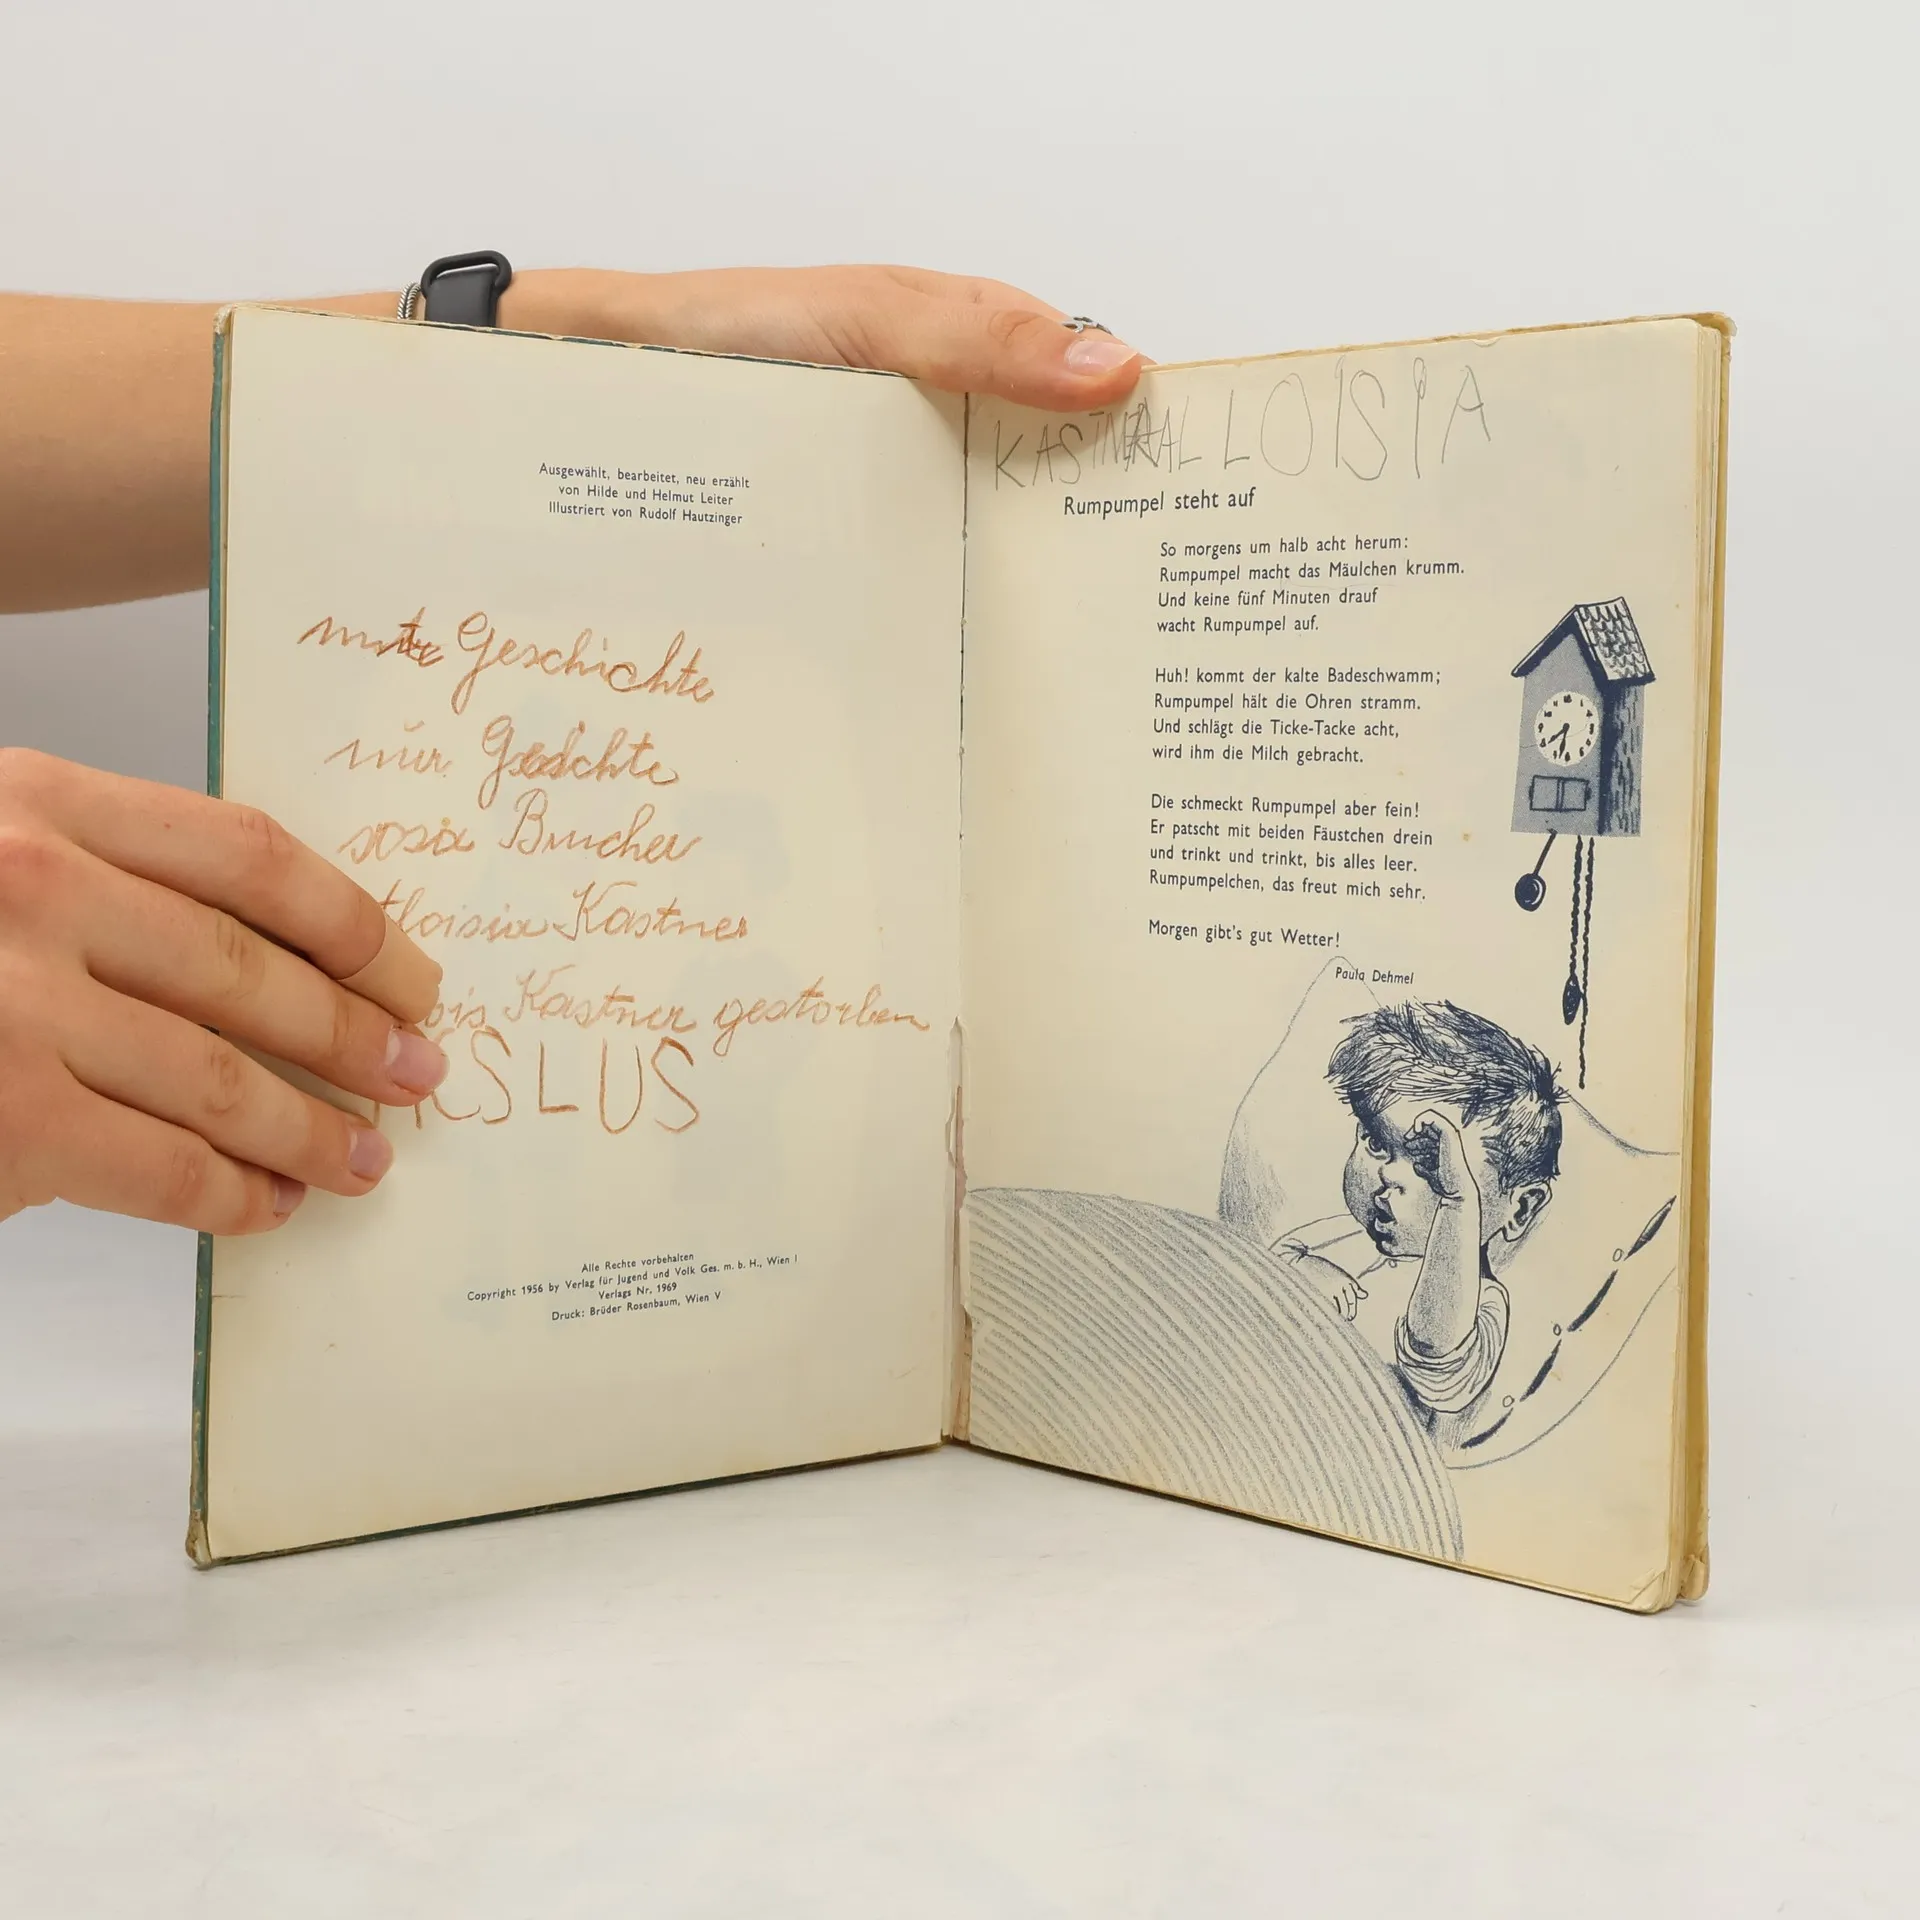 Ausgewählt, bearbeitet, neu erzählt
von Hilde und Helmut Leiter
Illustriert von Rudolf Hautzinger
Geschichte
nur
Kastner
bis Kastner gestorben
KSLUS
Alle Rechte vorbehalten
Copyright 1956 by Verlag für Jugend und Volk Ges. m. b. H., Wien I
Verlags Nr. 1969
Druck: Brüder Rosenbaum, Wien V
LOISIA
Rumpumpel steht auf
So morgens um halb acht herum:
Rumpumpel macht das Mäulchen krumm.
Und keine fünf Minuten drauf
wacht Rumpumpel auf.
Huh! kommt der kalte Badeschwamm;
Rumpumpel hält die Ohren stramm.
Und schlägt die Ticke-Tacke acht,
wird ihm die Milch gebracht.
Die schmeckt Rumpumpel aber fein!
Er patscht mit beiden Fäustchen drein
und trinkt und trinkt, bis alles leer.
Rumpumpelchen, das freut mich sehr.
Morgen gibt's gut Wetter!
Paula Dehmel